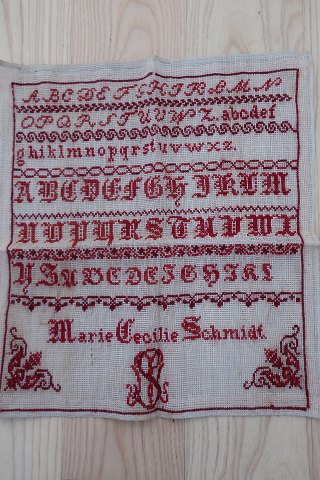 A B C D E F G H I K L M N
O P Q R S T U V W Z. abcdef
ghiklmnopqrstuvwxz.
A B C D E F G H I K L M
N O P Q R S T U V W X
Y Z A B C D E F G H I K L
Marie Cecilie Schmidt.